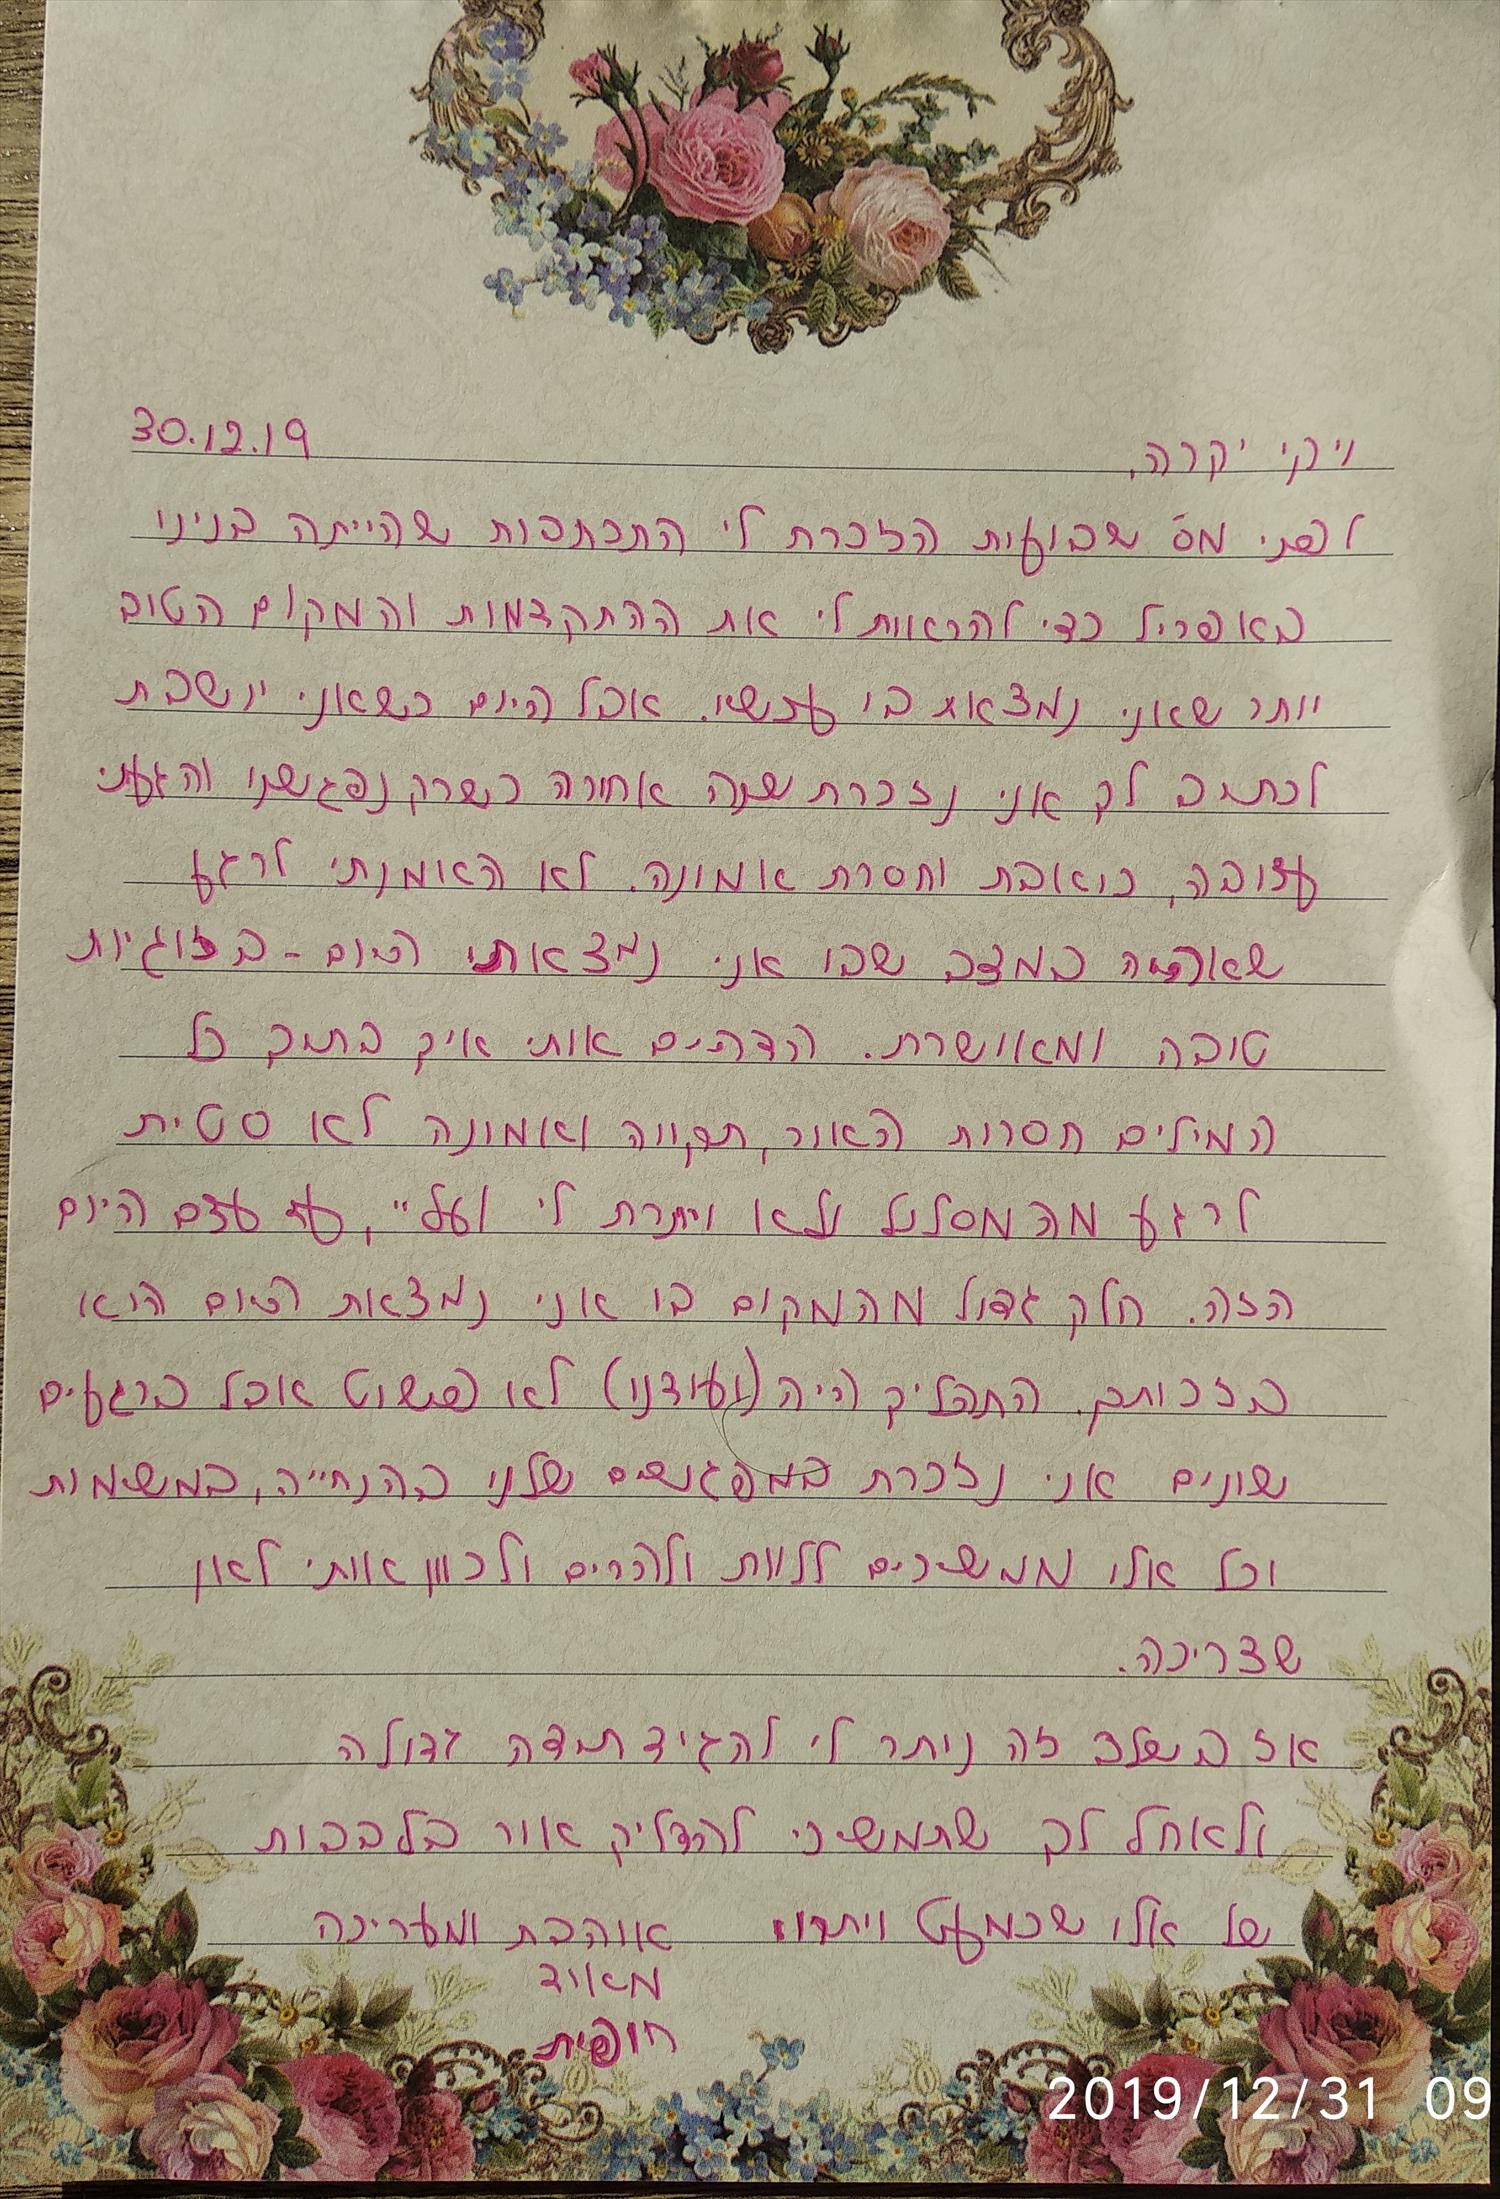 30.12.19
ויקי יקרה,
לפני מס' שבועות הזכרת לי התכתבות שהייתה בנינו
באפריל כדי להראות לי את ההתקדמות והמקום הטוב
יותר שאני נמצאת בו עכשיו. אבל היום כשאני יושבת
לכתוב לך אני נזכרת שנה אחורה כשרק נפגשנו והגעתי
עצובה, כואבת וחסרת אמונה. לא האמנתי לרגע
שאהיה במצב שבו אני נמצאת היום - בזוגיות
טובה ומאושרת. הדהים אותי איך בתוך כל
המילים חסרות האור, תקווה ואמונה לא סטית
לרגע מהמסלול ולא ויתרת לי ועלי", עד עצם היום
הזה. חלק גדול מהמקום בו אני נמצאת היום הוא
בזכותך. התהליך היה (ועודנו) לא פשוט אבל ברגעים
שונים אני נזכרת במפגשים שלנו בהנחייה, במשימות
וכל אלו ממשיכים ללוות ולהרים ולכוון אותי לאן
שצריכה.
אז בשלב זה נותר לי להגיד תודה גדולה
ולאחל לך שתמשיכי להדליק אור בלבבות
של אלו שכמעט ויתרו.
אוהבת ומעריכה
מאוד
חופית
2019/12/31 09